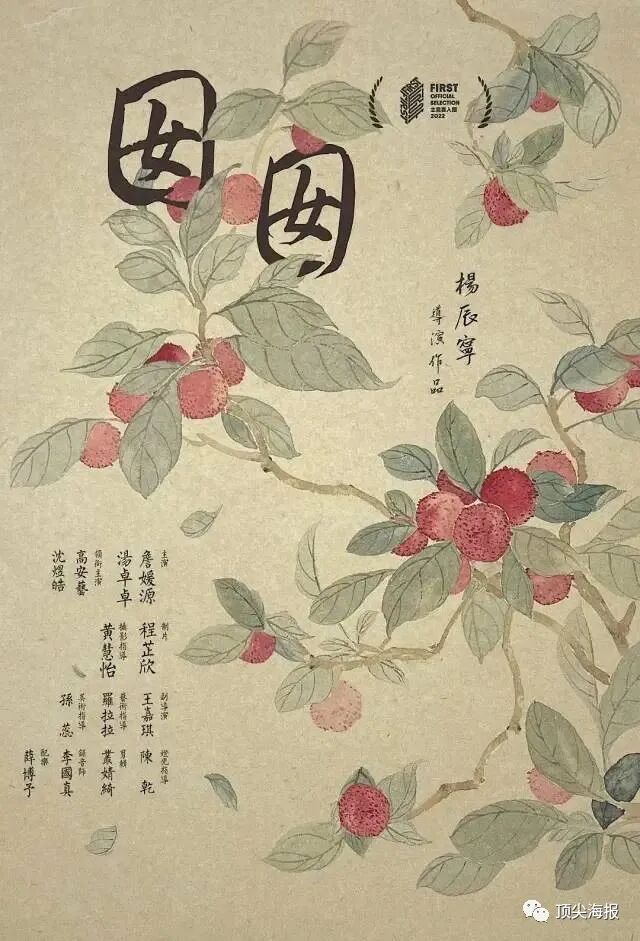 囡囡
FIRST
OFFICIAL
SELECTION
主竞赛入围
2022
楊辰寧
導演作品
主演
詹媛源
湯卓卓
領銜主演
高安藝
沈煜皓
制片
程芷欣
攝影指導
黃慧怡
副導演
王嘉琪
藝術指導
羅拉拉
美術指導
孫蕊
燈光指導
陳乾
剪輯
叢婧綺
錄音師
李國真
配樂
薛博予
顶尖海报